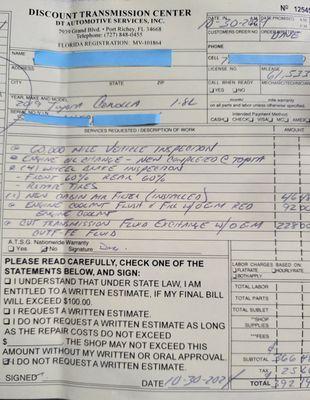 DISCOUNT TRANSMISSION CENTER
DT AUTOMOTIVE SERVICES, INC.
7959 Grand Blvd. • Port Richey, FL 34668
Telephone: (727) 848-0455
FLORIDA REGISTRATION: MV-101864
DATE
10-30-2024
DATE PROMISED
No 1254
CUSTOMERS ORDER NO.
ORDER
NAME
PHONE
ADDRESS
CELL
CITY STATE ZIP
LICENSE NO. MILEAGE
61,533
CALL WHEN READY MECHANIC/TECH
YES NO
YEAR, MAKE AND MODEL
2019 Toyota Corolla 1.8L
month/ mile warranty
on all parts and labor unless otherwise specified.
SERIAL NO.
Intended Payment Method
CASH CHECK VISA MC AMEX
SERVICES REQUESTED / DESCRIPTION OF WORK
AMOUNT
60,000 MILE VEHICLE INSPECTION
ENGINE OIL CHANGE - NEW COMPLETED @ TOYOTA
(4) WHEEL BRAKE INSPECTION
- FRONT 60% REAR 60%
- ROTATE TIRES
(1) NEW CABIN AIR FILTER (INSTALLED)
ENGINE COOLANT FLUSH & FILL W/OEM RED
ENGINE COOLANT
CVT TRANSMISSION FLUID EXCHANGE W/OEM
FE FLUID
A.T.S.G. Nationwide Warranty
Yes No Signature
PLEASE READ CAREFULLY, CHECK ONE OF THE
STATEMENTS BELOW, AND SIGN:
I UNDERSTAND THAT UNDER STATE LAW, I AM
ENTITLED TO A WRITTEN ESTIMATE, IF MY FINAL BILL
WILL EXCEED $100.00.
I REQUEST A WRITTEN ESTIMATE.
I DO NOT REQUEST A WRITTEN ESTIMATE AS LONG
AS THE REPAIR COSTS DO NOT EXCEED
$ THE SHOP MAY NOT EXCEED THIS
AMOUNT WITHOUT MY WRITTEN OR ORAL APPROVAL.
I DO NOT REQUEST A WRITTEN ESTIMATE.
SIGNED DATE 10-30-2024
LABOR CHARGES BASED ON:
FLATRATE HOURLYRATE
BOTH APPLY
TOTAL LABOR
TOTAL PARTS
TOTAL SUBLET
*SHOP
SUPPLIES
**FEES
SUBTOTAL 366
TAX 25
TOTAL 392